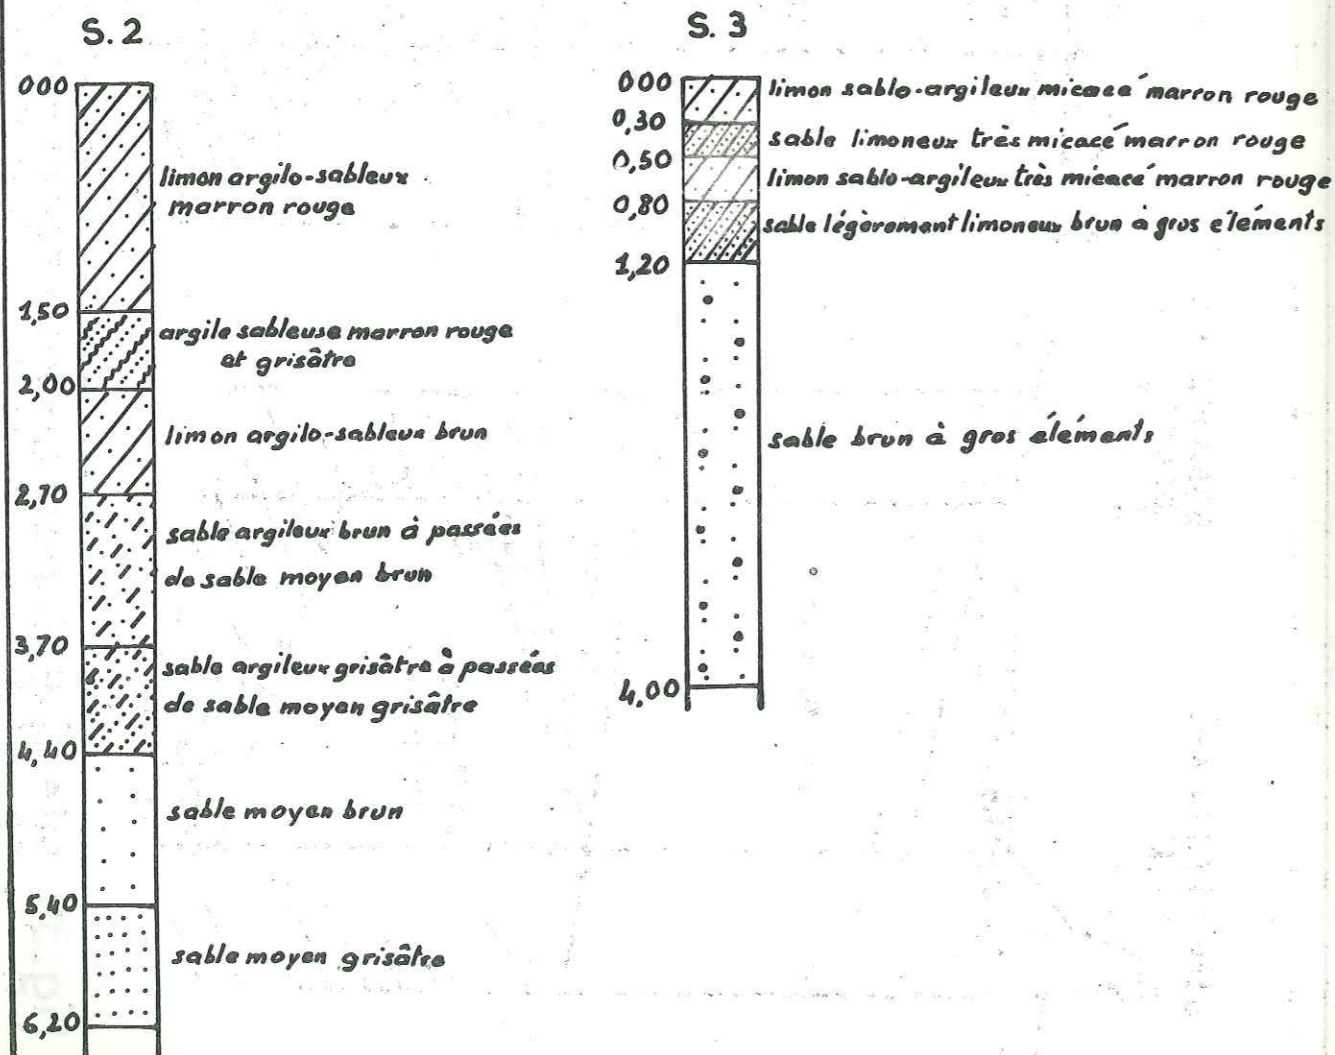 S. 2
000
limon argilo-sableux
marron rouge
1,50
argile sableuse marron rouge
et grisâtre
2,00
limon argilo-sableux brun
2,70
sable argileux brun à passées
de sable moyen brun
3,70
sable argileux grisâtre à passées
de sable moyen grisâtre
4,40
sable moyen brun
5,40
sable moyen grisâtre
6,20
S. 3
000
limon sablo-argileux micacé marron rouge
0,30
sable limoneux très micacé marron rouge
0,50
limon sablo-argileux très micacé marron rouge
0,80
sable légèrement limoneux brun à gros éléments
1,20
sable brun à gros éléments
4,00